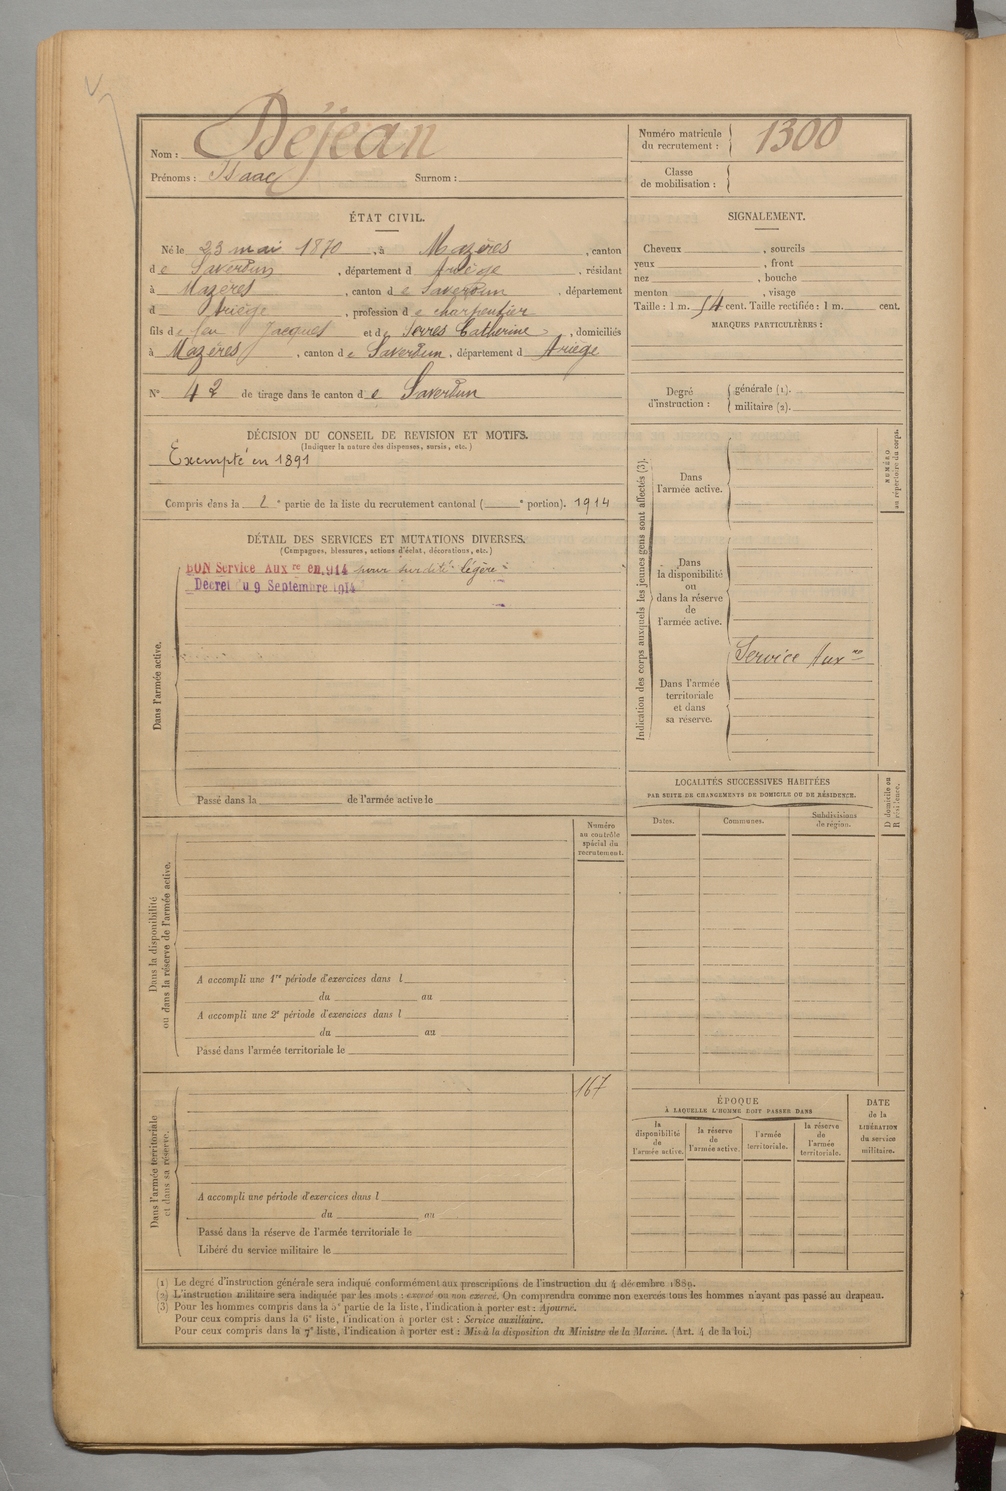 Nom : Déjean
Prénoms : Isaac Surnom :
Numéro matricule du recrutement : 1300
Classe de mobilisation :
ÉTAT CIVIL.
Né le 23 mai 1870, à Mazères, canton
de Saverdun, département d Ariège, résidant
à Mazères, canton de Saverdun, département
d Ariège, profession de charpentier
fils de feu Jacques et de Serres Catherine, domiciliés
à Mazères, canton de Saverdun, département d Ariège
N° 42 de tirage dans le canton de Saverdun
SIGNALEMENT.
Cheveux , sourcils
yeux , front
nez , bouche
menton , visage
Taille : 1 m. 54 cent. Taille rectifiée : 1 m. cent.
MARQUES PARTICULIÈRES :
Degré d'instruction : générale (1).
militaire (2).
DÉCISION DU CONSEIL DE REVISION ET MOTIFS.
(Indiquer la nature des dispenses, sursis, etc.)
Exempté en 1891
Compris dans la e partie de la liste du recrutement cantonal ( e portion). 1914
DÉTAIL DES SERVICES ET MUTATIONS DIVERSES.
(Campagnes, blessures, actions d'éclat, décorations, etc.)
BON Service Aux re en 1914 pour surdité légère
Décret du 9 Septembre 1914
Dans l'armée active.
Passé dans la de l'armée active le
Indication des corps auxquels les jeunes gens sont affectés (3).
NUMÉRO
au répertoire du corps.
Dans
l'armée active.
Dans
la disponibilité
ou
dans la réserve
de
l'armée active.
Service Aux re
Dans l'armée
territoriale
et dans
sa réserve.
LOCALITÉS SUCCESSIVES HABITÉES
PAR SUITE DE CHANGEMENTS DE DOMICILE OU DE RÉSIDENCE.
D domicile ou
R résidence.
Dates.
Communes.
Subdivisions
de région.
Dans la disponibilité
ou dans la réserve de l'armée active.
Numéro
au contrôle
spécial du
recrutement.
A accompli une 1re période d'exercices dans l
du au
A accompli une 2e période d'exercices dans l
du au
Passé dans l'armée territoriale le
Dans l'armée territoriale
et dans sa réserve.
167
A accompli une période d'exercices dans l
du au
Passé dans la réserve de l'armée territoriale le
Libéré du service militaire le
ÉPOQUE
À LAQUELLE L'HOMME DOIT PASSER DANS
la
disponibilité
de
l'armée active.
la réserve
de
l'armée active.
l'armée
territoriale.
la réserve
de
l'armée
territoriale.
DATE
de la
LIBÉRATION
du service
militaire.
(1) Le degré d'instruction générale sera indiqué conformément aux prescriptions de l'instruction du 4 décembre 1889.
(2) L'instruction militaire sera indiquée par les mots : exercé ou non exercé. On comprendra comme non exercés tous les hommes n'ayant pas passé au drapeau.
(3) Pour les hommes compris dans la 5e partie de la liste, l'indication à porter est : Ajourné.
Pour ceux compris dans la 6e liste, l'indication à porter est : Service auxiliaire.
Pour ceux compris dans la 7e liste, l'indication à porter est : Mis à la disposition du Ministre de la Marine. (Art. 4 de la loi.)